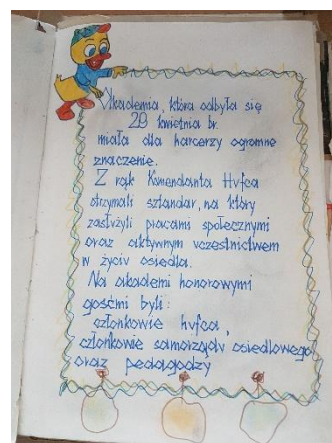 Akademia, która odbyła się
28 kwietnia br.
miała dla harcerzy ogromne
znaczenie.
Z rąk Komendanta Hufca
otrzymali sztandar, na który
zasłużyli pracami społecznymi
oraz aktywnym uczestnictwem
w życiu osiedla.
Na akademi honorowymi
gośćmi byli:
członkowie hufca,
członkowie samorządu osiedlowego
oraz pedagodzy